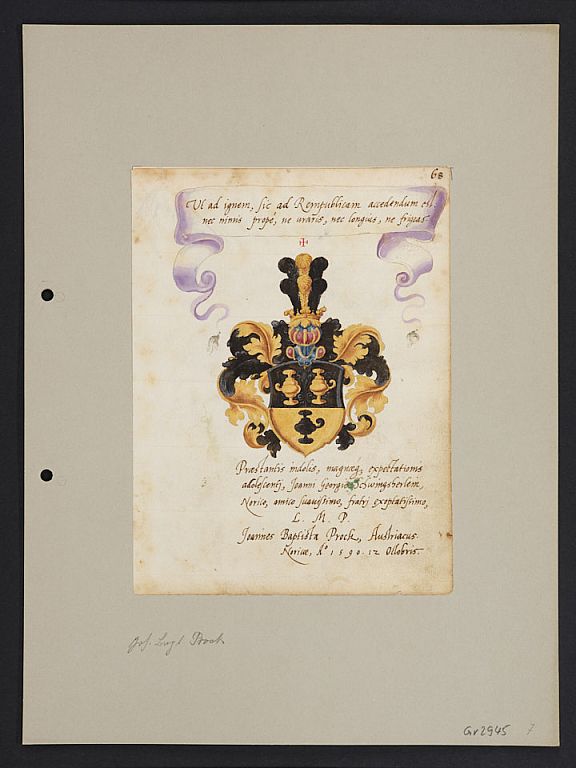 68
Ut ad ignem, sic ad Rempublicam accedendum est
nec nimis propè, ne uraris, nec longius, ne frigeas
Præstantis indolis, magnæq, expectationis
adolescenti, Joanni Georgio Schwingsherlein,
Norico, amico suavissimo, fratri exoptatissimo,
L. M. P.
Joannes Baptista Prock, Austriacus.
Noricæ, Aº 1590. 12 Octobris.
Joh. Bapt. Prock
Gr 2945 7